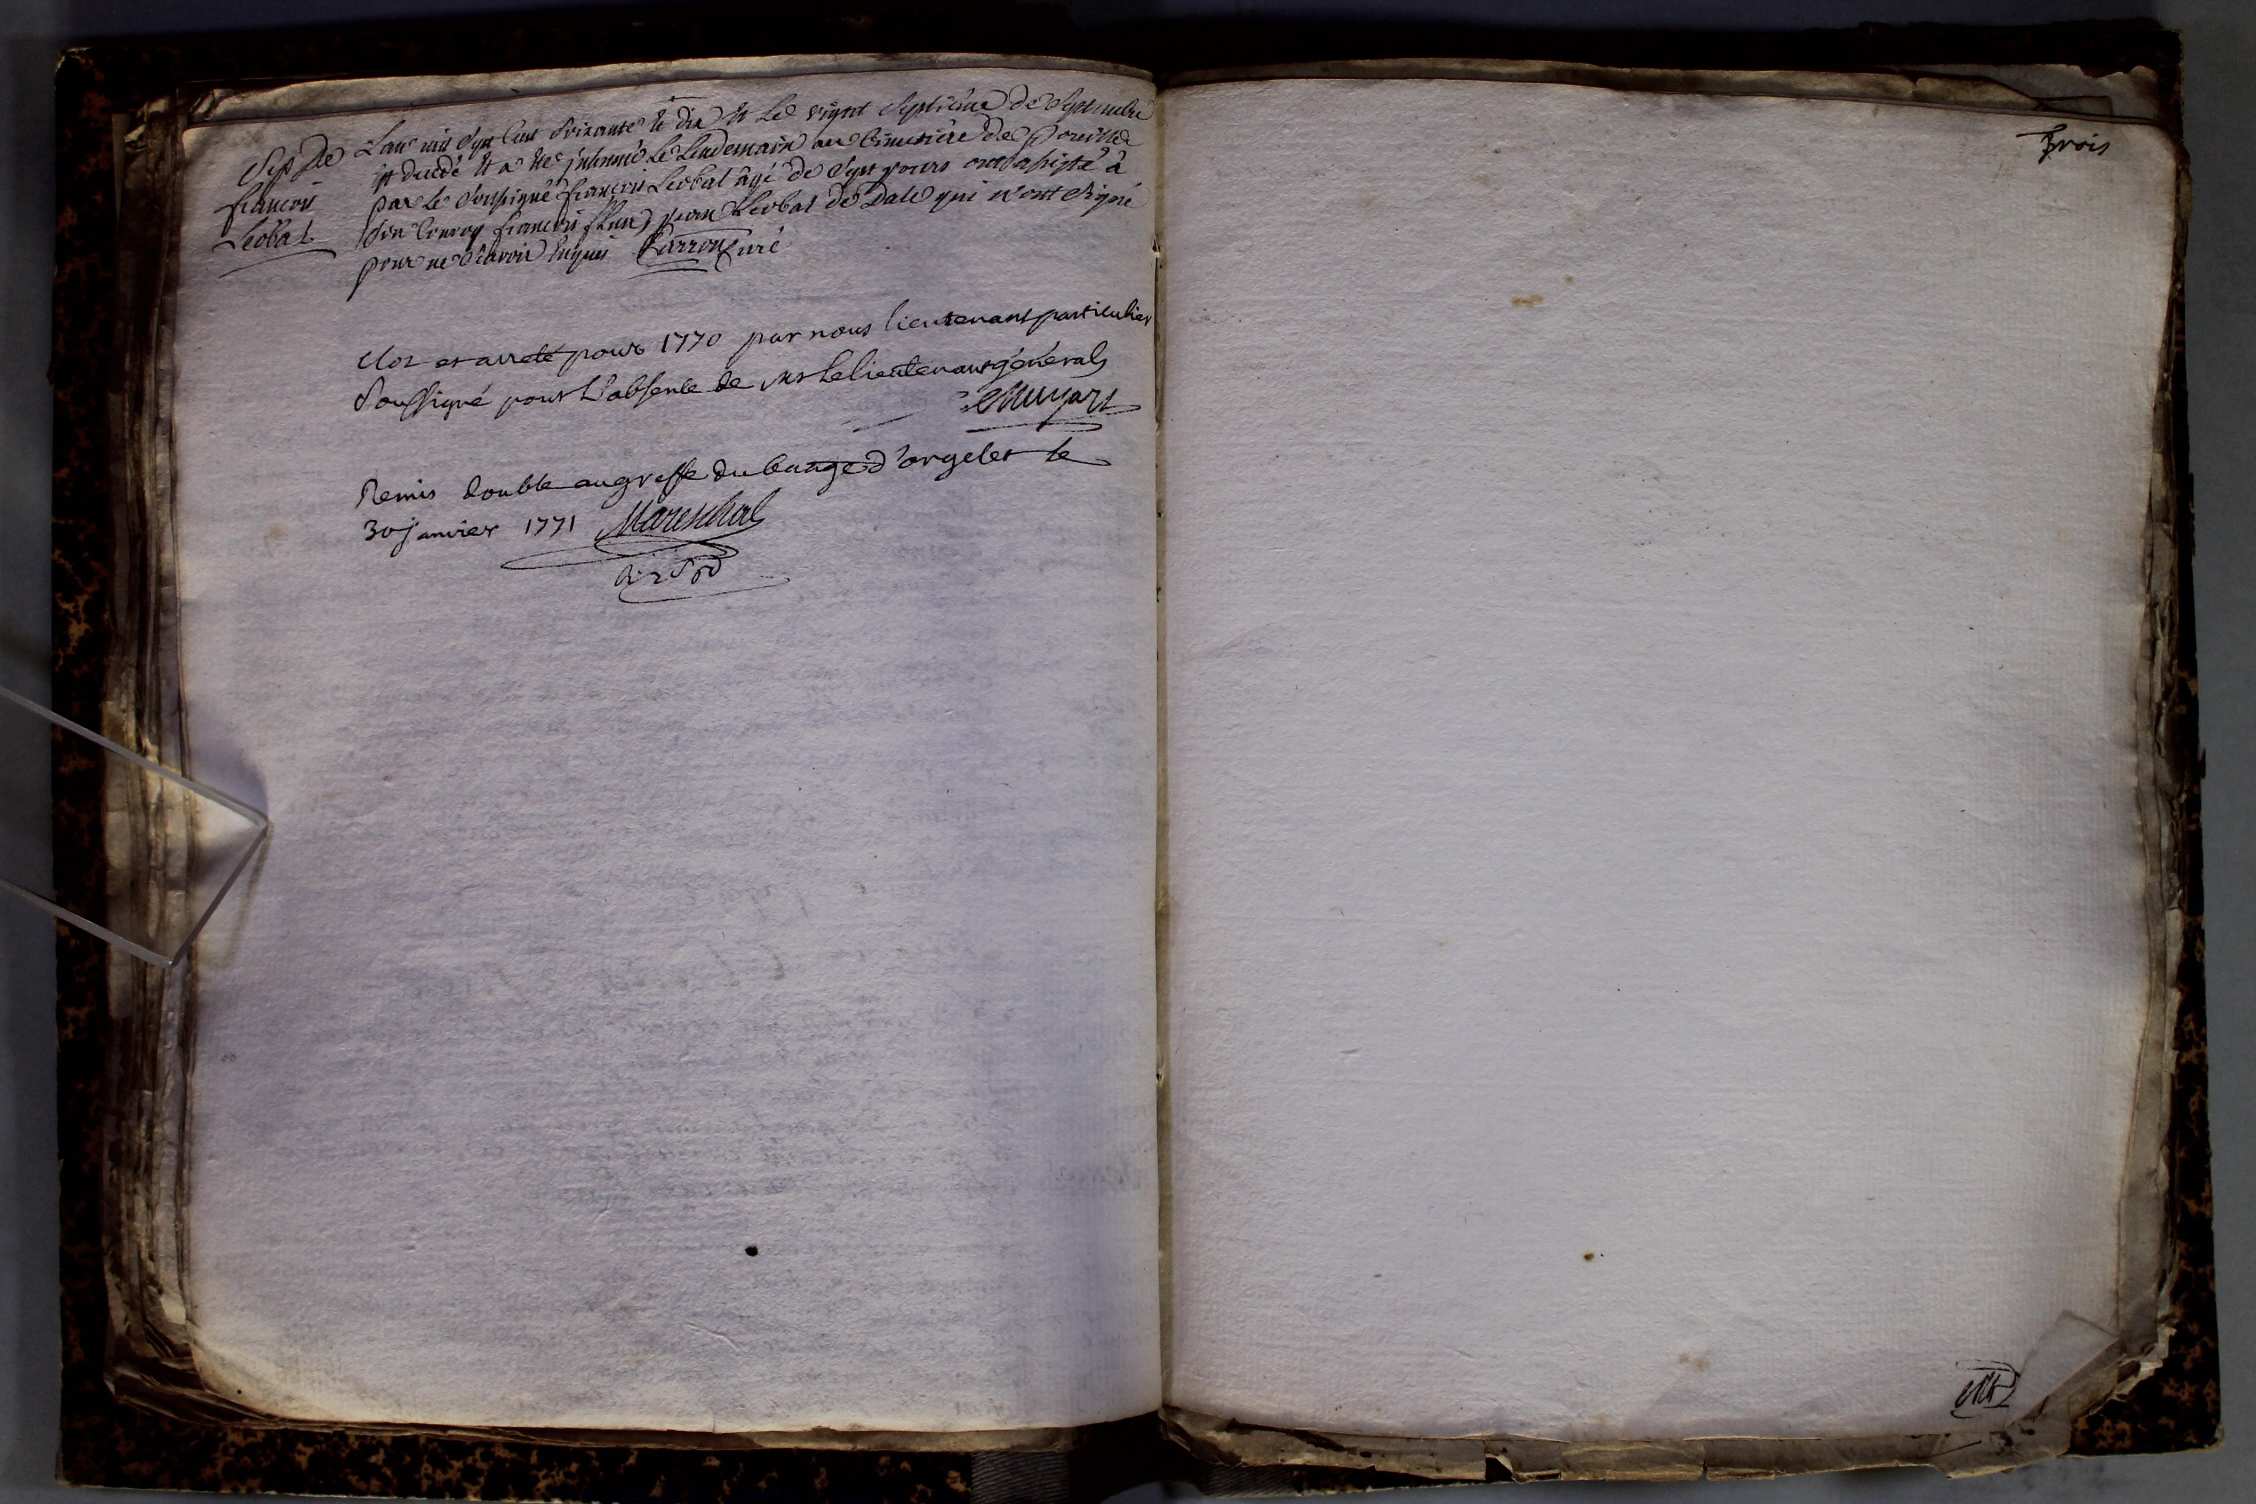 Sep. De
françois
Leobal
L'an mil Sept Cent Soixante et dix et Le vingt Septieme de Septembre
est decedé et a été inhumé Le Lendemain au Cimetiere de
par Le Soussigné françois Leobal âgé de Sept jours ont assisté à
Son Convoy françois jean Leobal de Dale qui n'ont Signé
pour ne Scavoir Enquis Carron Curé
Clos et arreté pour 1770 par nous lieutenant particulier
Soussigné pour L'absence de Mr Le lieutenant général
Muyart
Remis double au greffe du bailliage d'orgelet le
30 janvier 1771 Mareschal
Trois